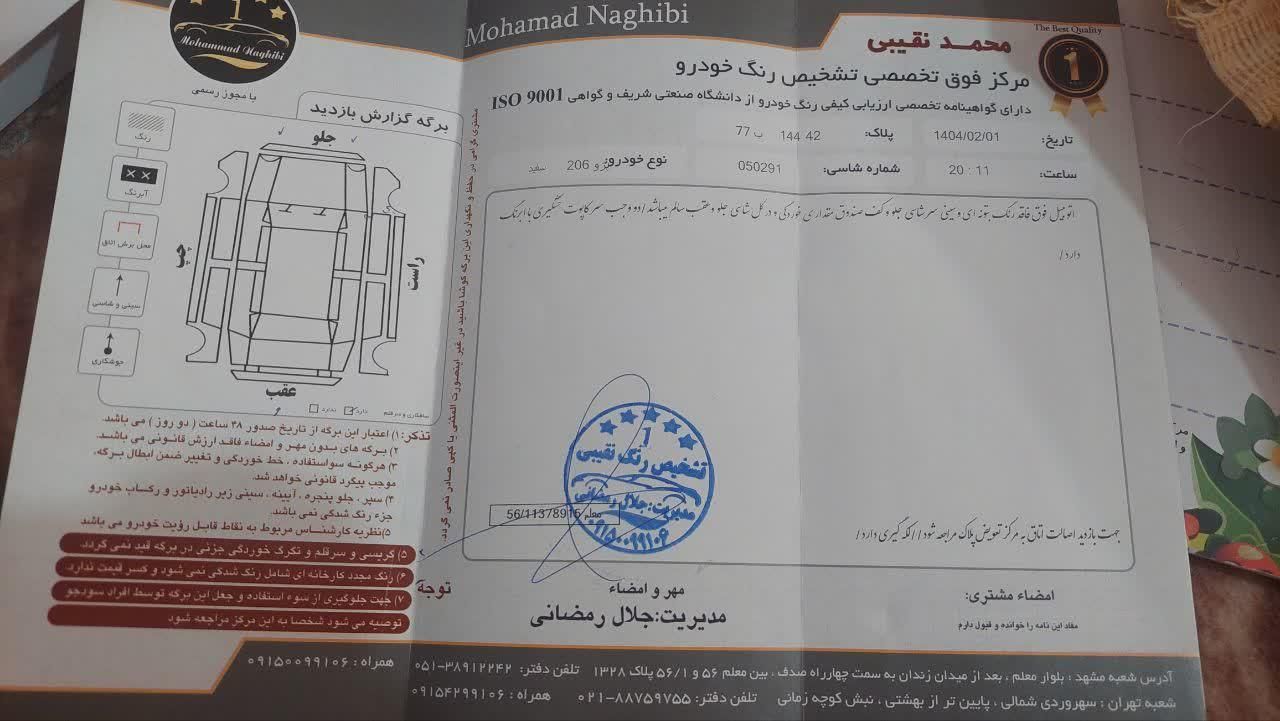 Mohamad Naghibi
The Best Quality
1
محمـد نقیبی
مرکز فوق تخصصی تشخیص رنگ خودرو
دارای گواهینامه تخصصی ارزیابی کیفی رنگ خودرو از دانشگاه صنعتی شریف و گواهی ISO 9001
تاریخ: 1404/02/01
پلاک: 42 144 ب 77
ساعت: 11 : 20
شماره شاسی: 050291
نوع خودرو: پژو 206 سفید
اتومبیل فوق فاقد رنگ بتونه ای و سینی سرشاسی جلو و کف صندوق مقداری خوردگی و در کل شاسی جلو و عقب سالم میباشد / دو وجب سر کاپوت لکگیری با ابرنگ
دارد /
جهت بازدید اصالت اتاق به مرکز تعویض پلاک مراجعه شود / / لکه گیری دارد /
1
تشخیص رنگ نقیبی
مدیریت:جلال رمضانی
۰۹۱۵۰۰۹۹۱۰۶
معلم 56/11378915
مهر و امضاء
مدیریت:جلال رمضانی
امضاء مشتری:
مفاد این نامه را خوانده و قبول دارم
مشتری گرامی در حفظ و نگهداری این برگه کوشا باشید در غیر اینصورت المثنی یا کپی صادر نمی گردد.
1
Mohammad Naghibi
با مجوز رسمی
برگه گزارش بازدید
جلو
راست
چپ
عقب
رنگ
آبرنگ
محل برش اتاق
سینی و شاسی
جوشکاری
صافکاری و سرقلم دارد ندارد
تذکر: ۱) اعتبار این برگه از تاریخ صدور ۴۸ ساعت ( دو روز ) می باشد.
۲) برگه های بدون مهر و امضاء فاقد ارزش قانونی می باشـد.
۳) هرگونه سواستفاده ، خط خوردگی و تغییر ضمن ابطال برگه،
موجب پیگرد قانونی خواهد شد.
۴) سپر ، جلو پنجره ، آیینه ، سینی زیر رادیاتور و رکساب خودرو
جزء رنگ شدگی نمی باشد.
۵)نظریه کارشناس مربوط به نقاط قابل رؤیت خودرو می باشد
۵) گریسی و سرقلم و تگرگ خوردگی جزئی در برگه قید نمی گردد.
۶) رنگ مجدد کارخانه ای شامل رنگ شدگی نمی شود و کسر قیمت ندارد.
توجه
۷) جهت جلوگیری از سوء استفاده و جعل این برگه توسط افراد سودجو
توصیه می شود شخصا به این مرکز مراجعه شود
آدرس شعبه مشهد : بلوار معلم ، بعد از میدان زندان به سمت چهارراه صدف ، بین معلم ۵۶ و ۵۶/۱ پلاک ۱۳۲۸ تلفن دفتر: ۳۸۹۱۲۲۴۲-۰۵۱ همراه : ۰۹۱۵۰۰۹۹۱۰۶
شعبه تهران : سهروردی شمالی ، پایین تر از بهشتی ، نبش کوچه زمانی تلفن دفتر: ۸۸۷۵۹۷۵۵-۰۲۱ همراه : ۰۹۱۵۴۲۹۹۱۰۶